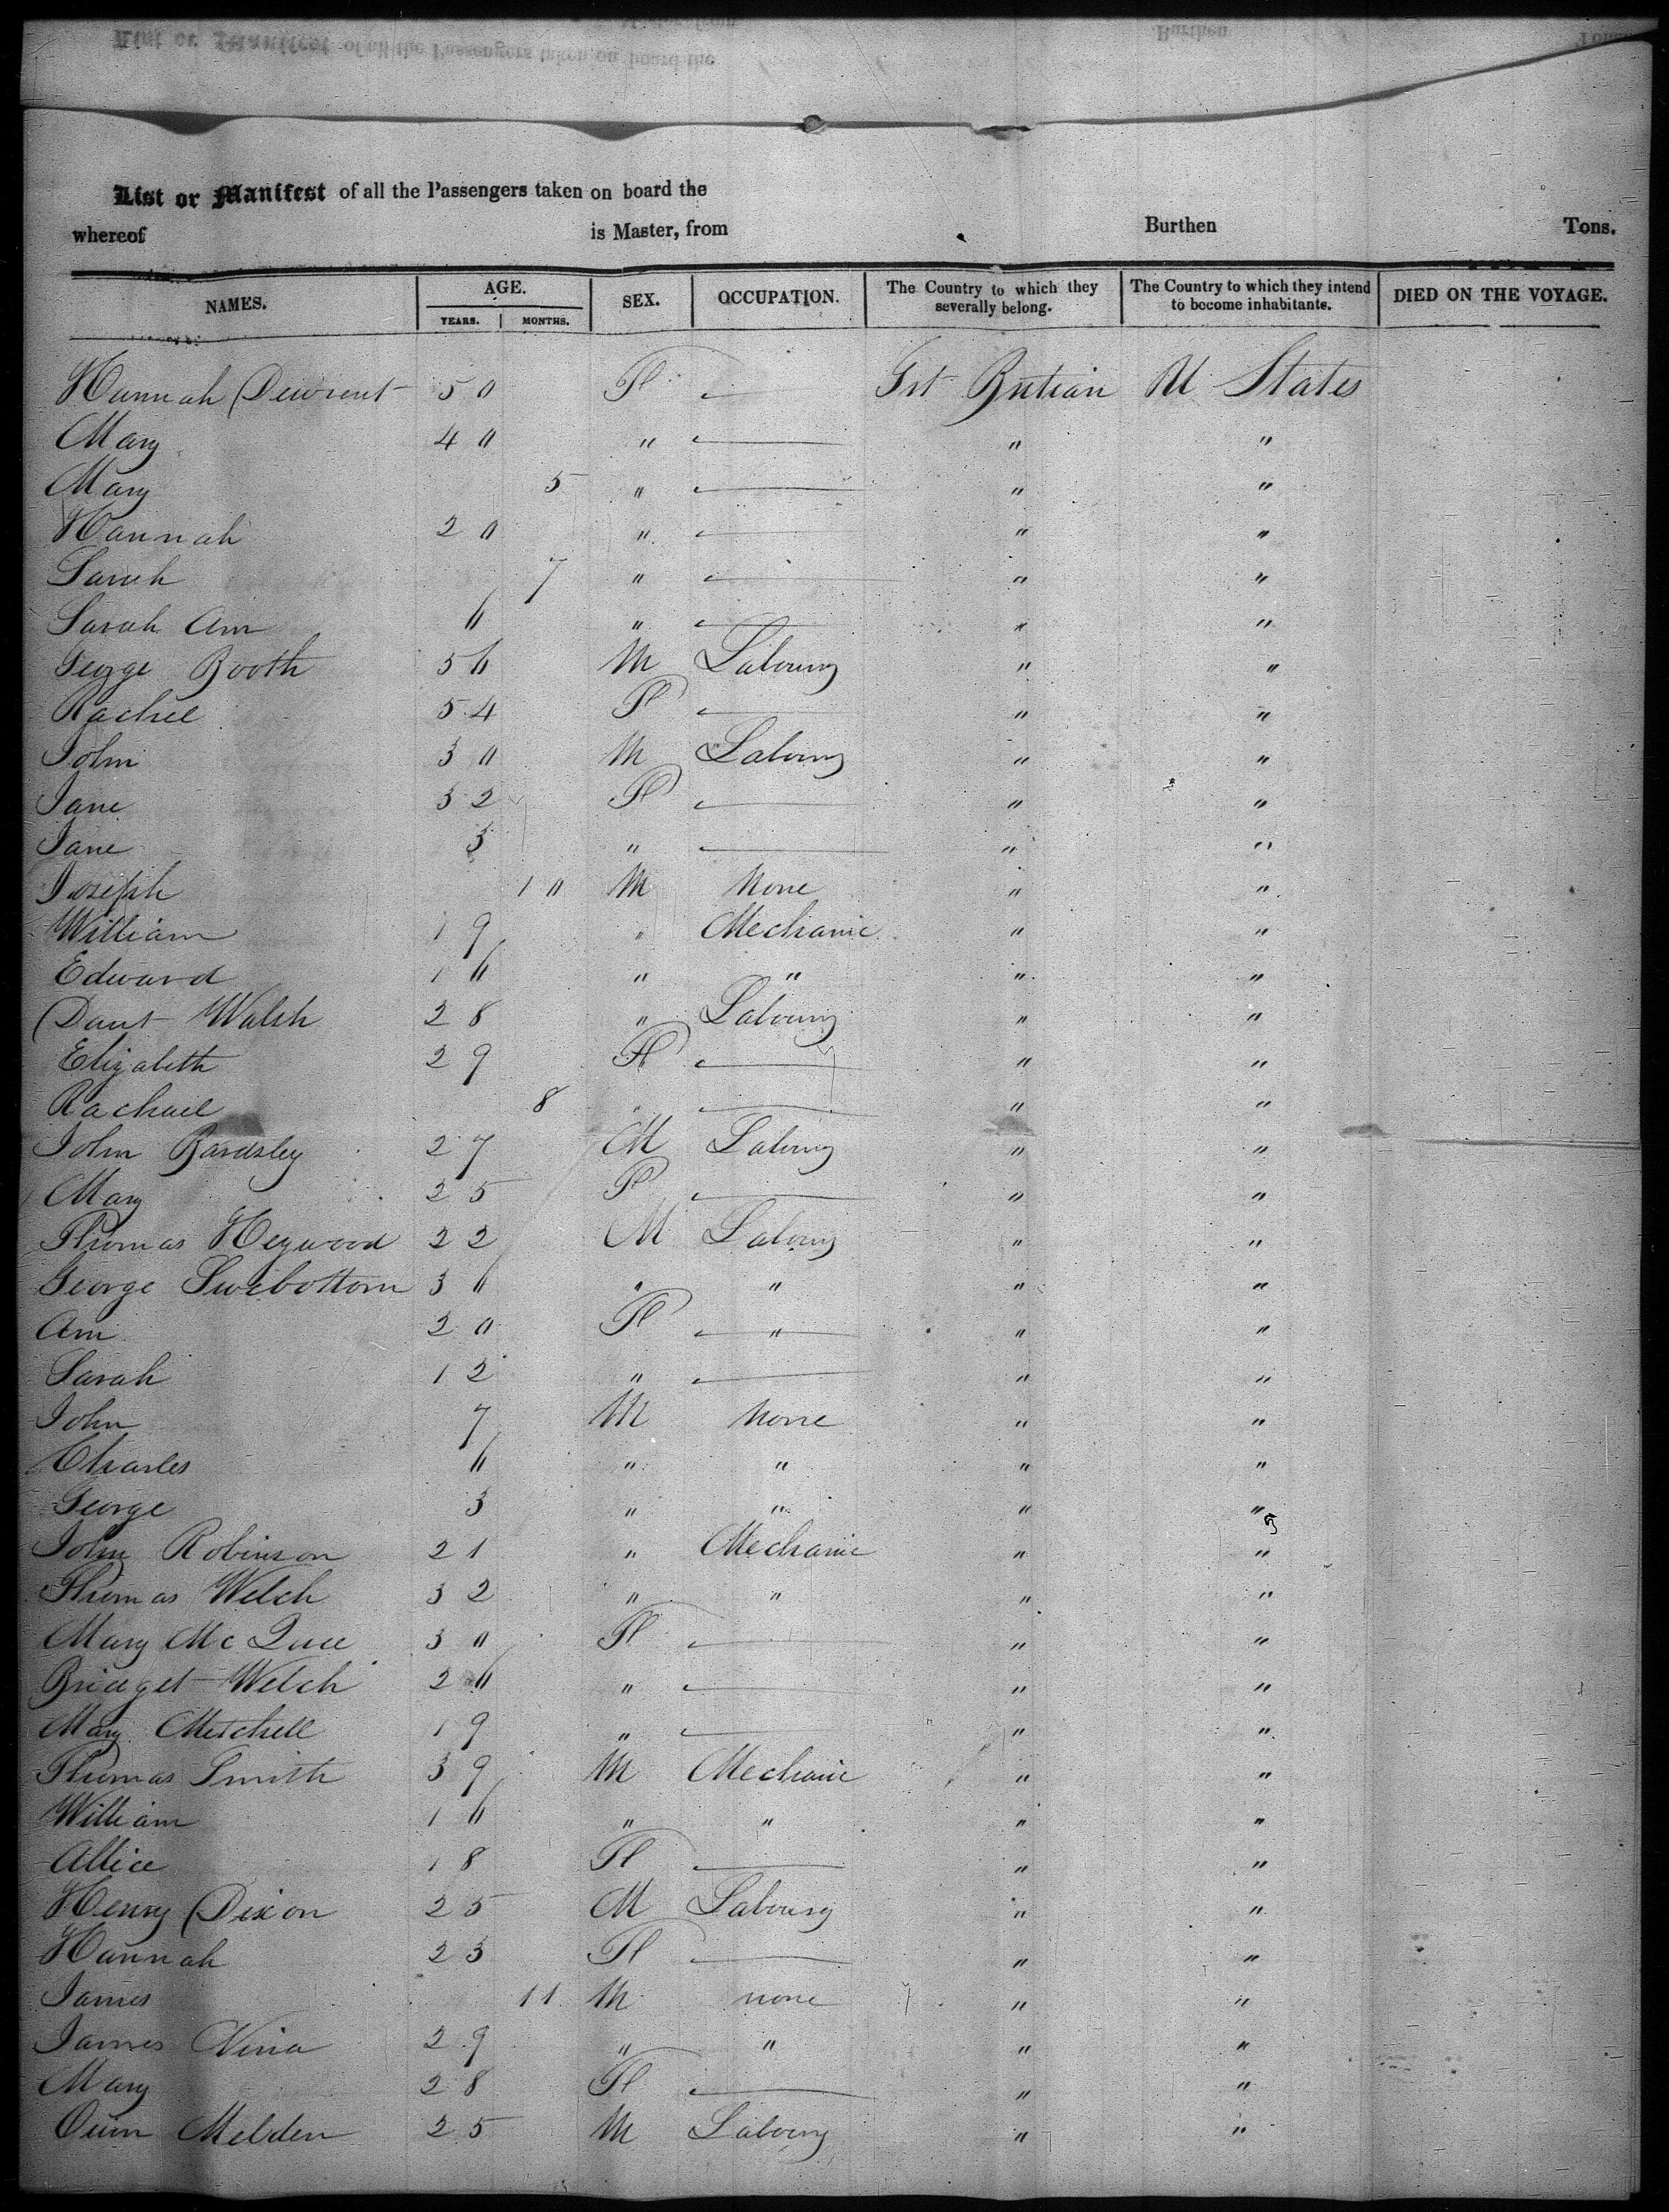 List or Manifest of all the Passengers taken on board the
whereof is Master, from Burthen Tons.
NAMES. AGE. YEARS. MONTHS. SEX. OCCUPATION. The Country to which they severally belong. The Country to which they intend to become inhabitants. DIED ON THE VOYAGE.
Hannah 50 F — Grt Britian U States
Mary 40 " — " "
Mary 5 " — " "
Hannah 20 " — " "
Sarah 7 " — " "
Sarah Ann 6 " — " "
George Booth 56 M Labourg " "
Rachel 54 F — " "
John 30 M Labourg " "
Jane 32 F — " "
Jane 3 " — " "
Joseph 10 M None " "
William 19 " Mechanic " "
Edward 16 " " " "
Walsh 28 " Labourg " "
Elizabeth 29 F — " "
Rachael 8 " — " "
John Bardsley 27 M Labourg " "
Mary 25 F — " "
Thomas Heywood 22 M Labourg " "
George 36 " " " "
Ann 20 F " " "
Sarah 12 " — " "
John 7 M None " "
Charles 6 " " " "
George 3 " " " "
John Robinson 21 " Mechanic " "
Thomas Welch 32 " " " "
Mary Mc 30 F — " "
Bridget Welch 26 " — " "
Mary Mitchell 19 " — " "
Thomas Smith 39 M Mechanic " "
William 16 " " " "
Allice 18 F — " "
Henry Dixon 25 M Labourg " "
Hannah 23 F — " "
James 11 M none " "
James 29 " " " "
Mary 28 F — " "
Melden 25 M Labourg " "